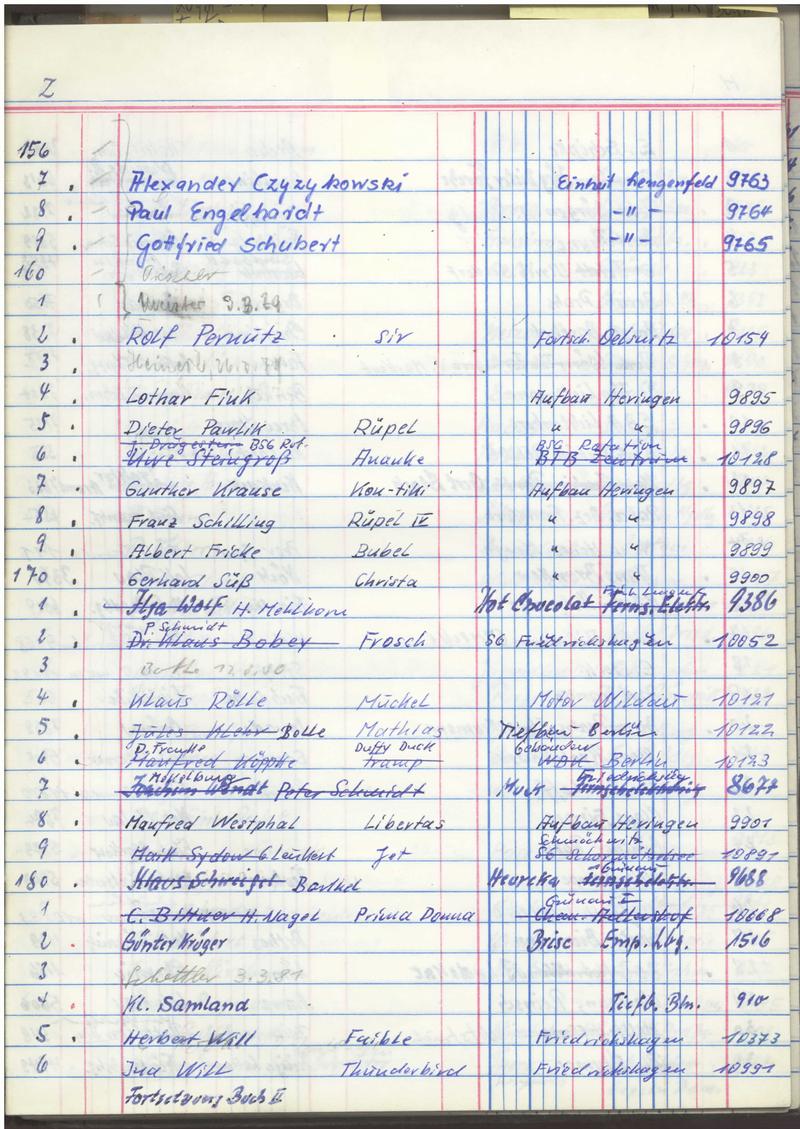 Z
156
7 . Alexander Czyzykowski Einheit Lengenfeld 9763
8 . Paul Engelhardt -"- 9764
9 . Gottfried Schubert -"- 9765
160
1 9.3.79
2 . Rolf Pernutz Sir Fortsch. Oelsnitz 10154
3 .
4 . Lothar Fink Aufbau Heringen 9895
5 . Dieter Pawlik Rüpel " " 9896
BSG Rot. BSG Rotation
6 . Uwe Steingroß Ananke BTB Zentrum 10128
7 . Gunther Krause Kon-tiki Aufbau Heringen 9897
8 . Franz Schilling Rüpel IV " " 9898
9 . Albert Fricke Bubel " " 9899
170 . Gerhard Süß Christa " " 9900
1 . Ilja Wolf H. Mehlhorn Hot Chocolat Ferns. Elektr. 9386
P. Schmidt
2 . Dr. Klaus Bobey Frosch SG Friedrichshagen 10052
3 Bothe
4 . Klaus Rölle Muckel Motor Wildau 10121
5 . Jules Klehr Bolle Mathias Tiefbau Berlin 10122
D. Franke Duffy Duck
6 . Manfred Köppke Tramp WBK Berlin 10123
Friedrichshg
7 . Joachim Wendt Peter Schmidt Muck 8677
8 . Manfred Westphal Libertas Aufbau Heringen 9901
Schmöckwitz
9 Maik Sydow Jet SG 10891
Grünau
180 . Barthel Heureka 9688
Grünau II
1 . C. Bittner H. Nagel Prima Donna Chem. Adlershof 10668
2 . Günter Krüger Brise Emp. Lbg. 1516
3 Schettler 3.3.81
4 . Kl. Samland Tiefb. Bln. 910
5 . Herbert Will Faible Friedrichshagen 10373
6 . Ina Will Thunderbird Friedrichshagen 10991
Fortsetzung Buch II